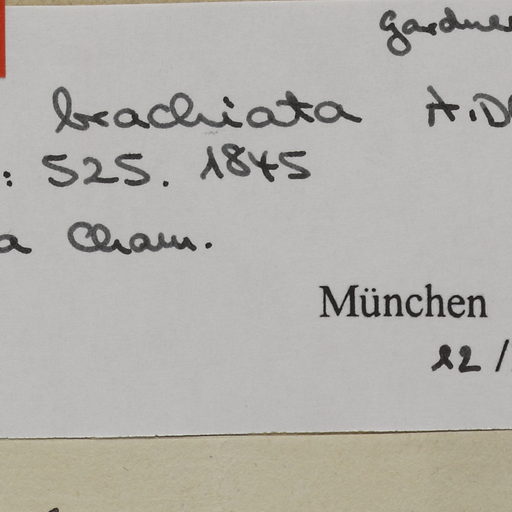 Gardner
brachiata A.D
: 525. 1845
a Cham.
München
12/